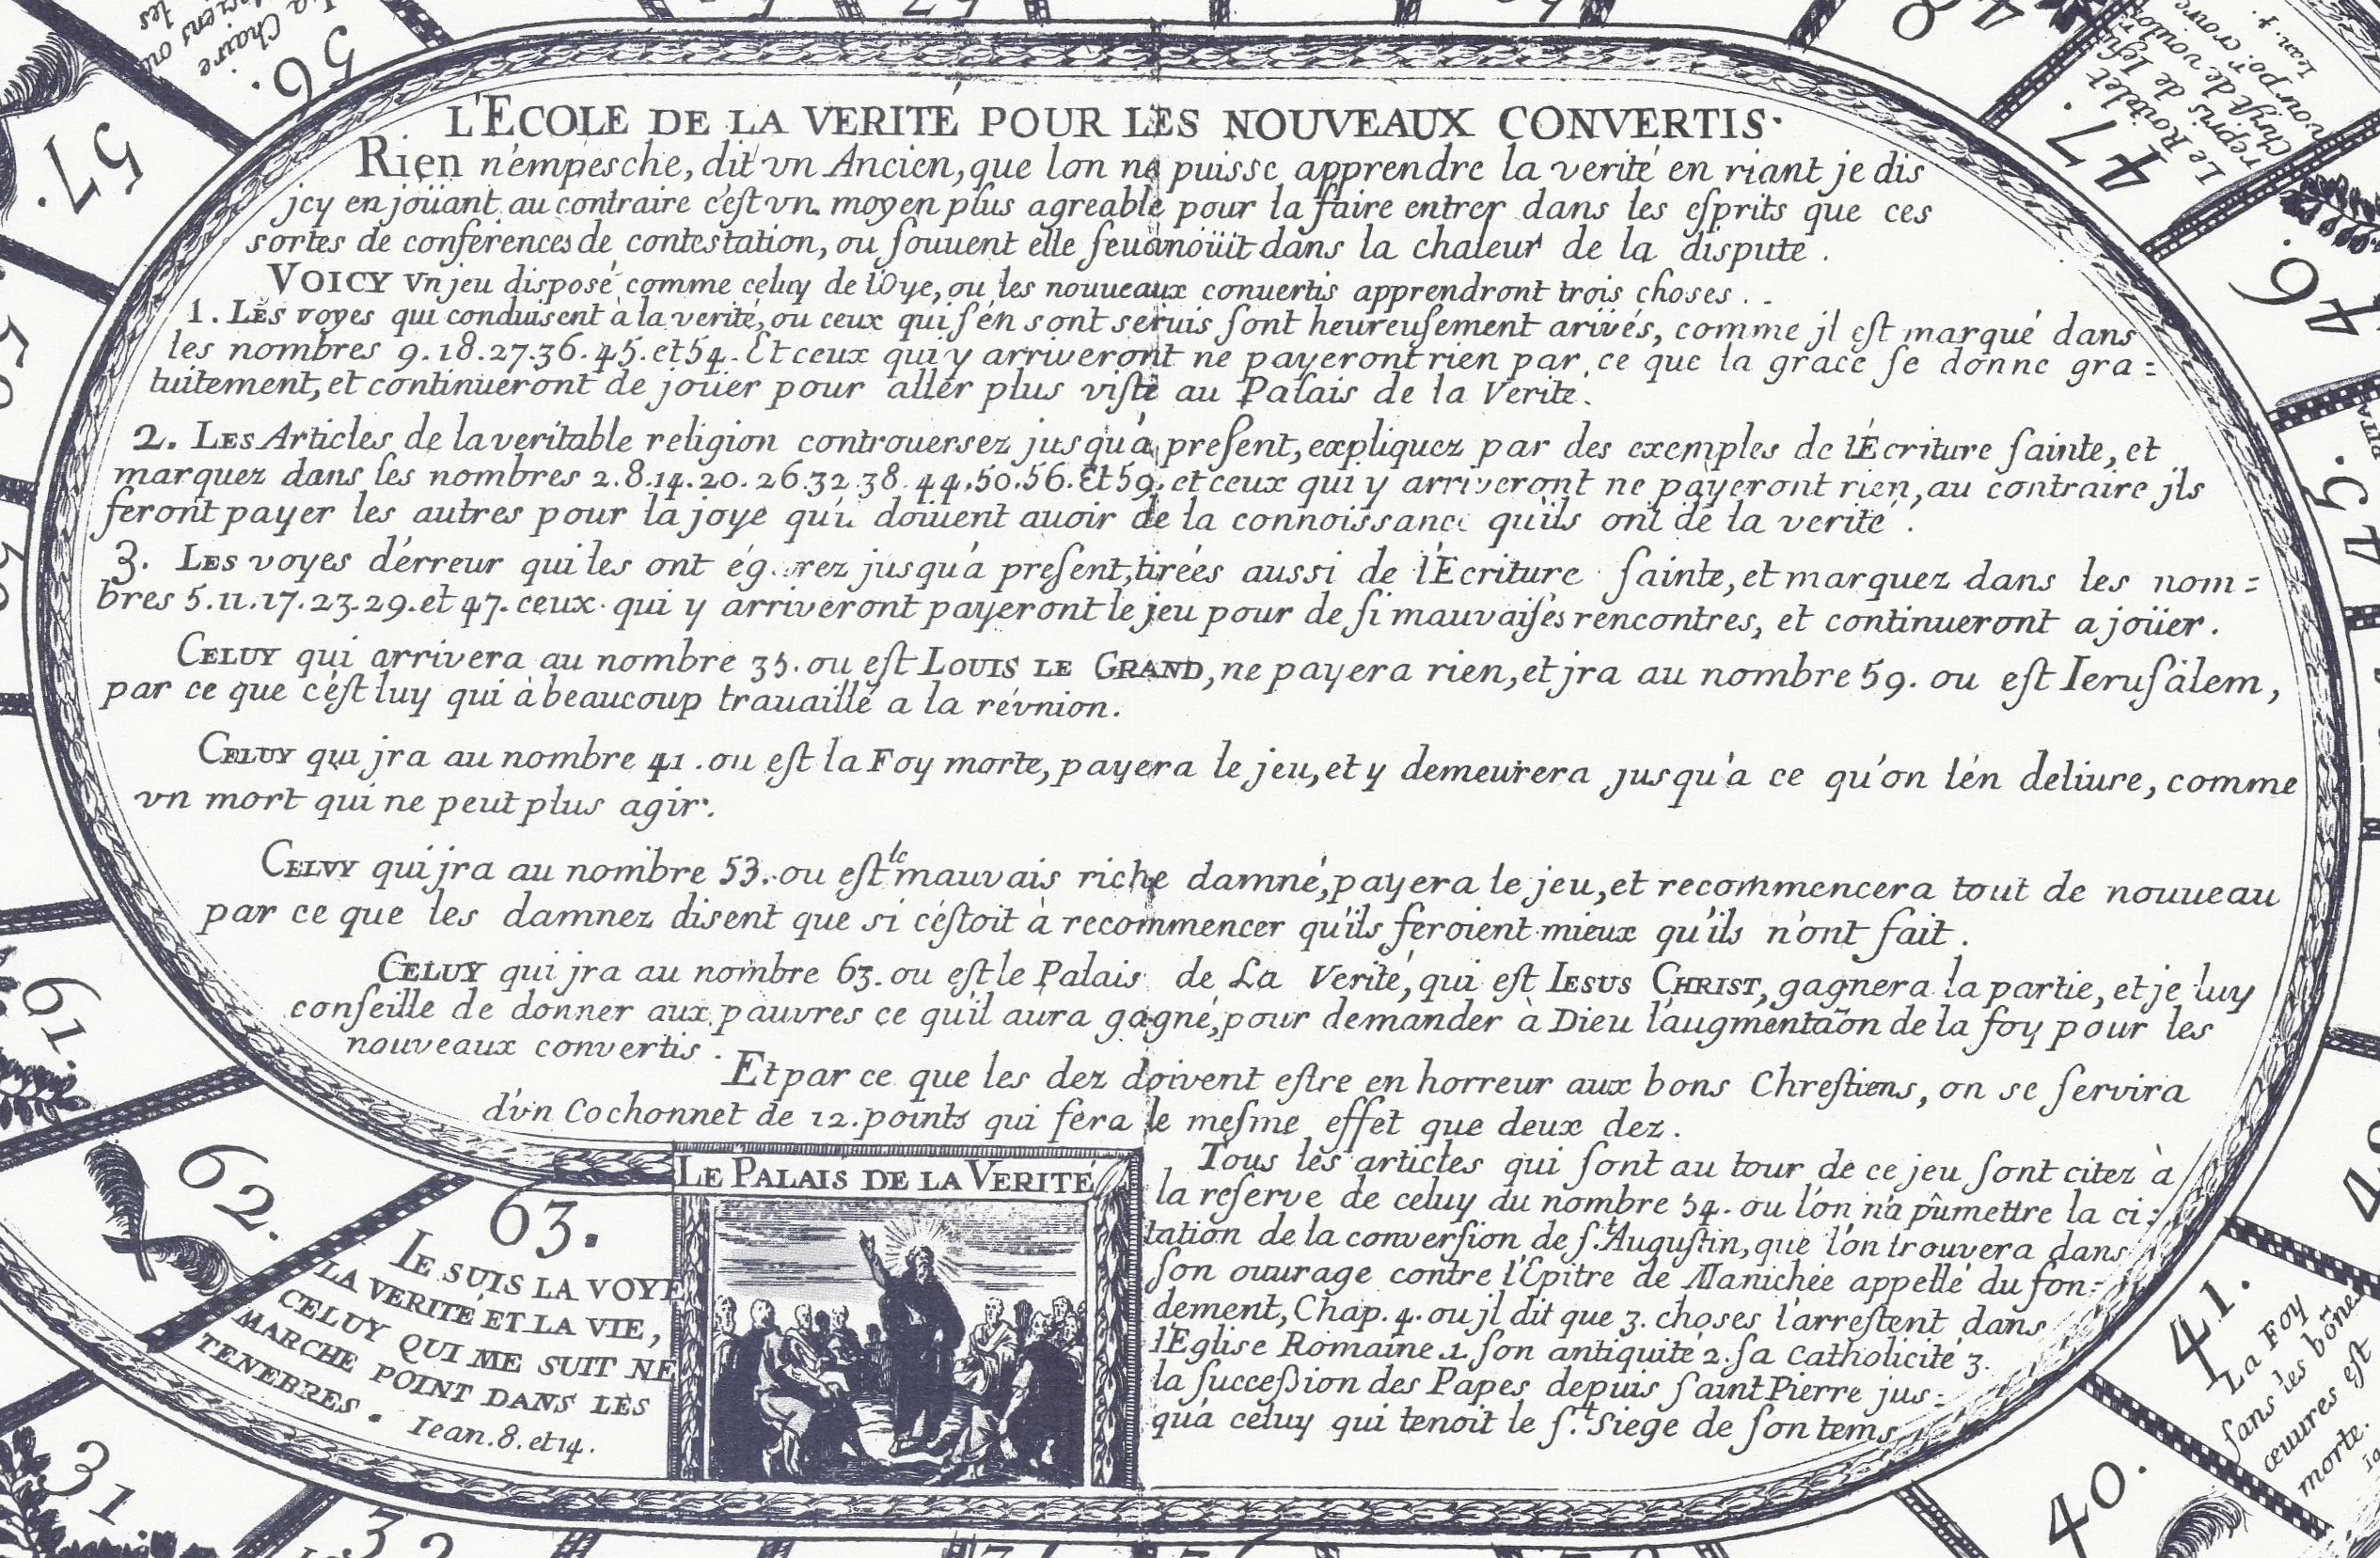 L'ECOLE DE LA VERITÉ POUR LES NOUVEAUX CONVERTIS.
Rien n'empesche, dit vn Ancien, que lon ne puisse apprendre la verité en riant je dis
jcy en joüant au contraire c'est vn moyen plus agreable pour la faire entrer dans les esprits que ces
sortes de conferences de contestation, ou souuent elle seuanoüit dans la chaleur de la dispute.
VOICY vn jeu disposé comme celuy de l'Oye, ou les nouueaux conuertis apprendront trois choses.
1. LES voyes qui conduisent à la verité, ou ceux qui s'en sont seruis sont heureusement arivés, comme jl est marqué dans
les nombres 9.18.27.36.45. et 54. Et ceux qui y arriveront ne payeront rien par ce que la grace se donne gra=
tuitement, et continueront de joüer pour aller plus viste au Palais de la Verite.
2. LES Articles de la veritable religion controuersez jusqu'a present, expliquez par des exemples de l'Ecriture sainte, et
marquez dans les nombres 2.8.14.20.26.32.38.44.50.56. Et 59. et ceux qui y arriveront ne payeront rien, au contraire jls
feront payer les autres pour la joye qu'il doiuent auoir de la connoissance qu'ils ont de la verité.
3. LES voyes d'erreur qui les ont égarez jusqu'a present, tireés aussi de l'Ecriture sainte, et marquez dans les nom=
bres 5.11.17.23.29. et 47. ceux qui y arriveront payeront le jeu pour de si mauvaises rencontres, et continueront a joüer.
CELUY qui arrivera au nombre 35. ou est LOUIS LE GRAND, ne payera rien, et jra au nombre 59. ou est Ierusalem,
par ce que c'est luy qui à beaucoup trauaillé a la révnion.
CELUY qui jra au nombre 41. ou est la Foy morte, payera le jeu, et y demeurera jusqu'a ce qu'on l'en deliure, comme
vn mort qui ne peut plus agir.
CELVY qui jra au nombre 53. ou est le mauvais riche damné, payera le jeu, et recommencera tout de nouueau
par ce que les damnez disent que si c'estoit à recommencer qu'ils feroient mieux qu'ils n'ont fait.
CELUY qui jra au nombre 63. ou est le Palais de La Verité, qui est IESUS CHRIST, gagnera la partie, et je luy
conseille de donner aux pauvres ce qu'il aura gagné, pour demander à Dieu l'augmentaõn de la foy pour les
nouveaux convertis.
Et par ce que les dez doivent estre en horreur aux bons Chrestiens, on se servira
d'vn Cochonnet de 12. points qui fera le mesme effet que deux dez.
Tous les articles qui sont au tour de ce jeu sont citez à
la reserve de celuy du nombre 54. ou l'on n'a pû mettre la ci=
tation de la conversion de s.t Augustin, que l'on trouvera dans
son ouurage contre l'Epitre de Manichée appellé du fon=
dement, Chap. 4. ou jl dit que 3. choses l'arrestent dans
l'Eglise Romaine 1. son antiquité 2. sa Catholicité 3.
la succession des Papes depuis saint Pierre jus=
qu'a celuy qui tenoit le s.t Siege de son tems
LE PALAIS DE LA VERITÉ
63.
IE SUIS LA VOYE
LA VERITÉ ET LA VIE,
CELUY QUI ME SUIT NE
MARCHE POINT DANS LES
TENEBRES.
Iean. 8. et 14.
62.
61.
57.
56.
Chaire
48
47.
Le Roitelet
repris de Iesu
Chryst de vouloir
Iean. 4.
46.
45.
41.
La Foy
sans les bõnes
œuures est
morte.
40.
31
32